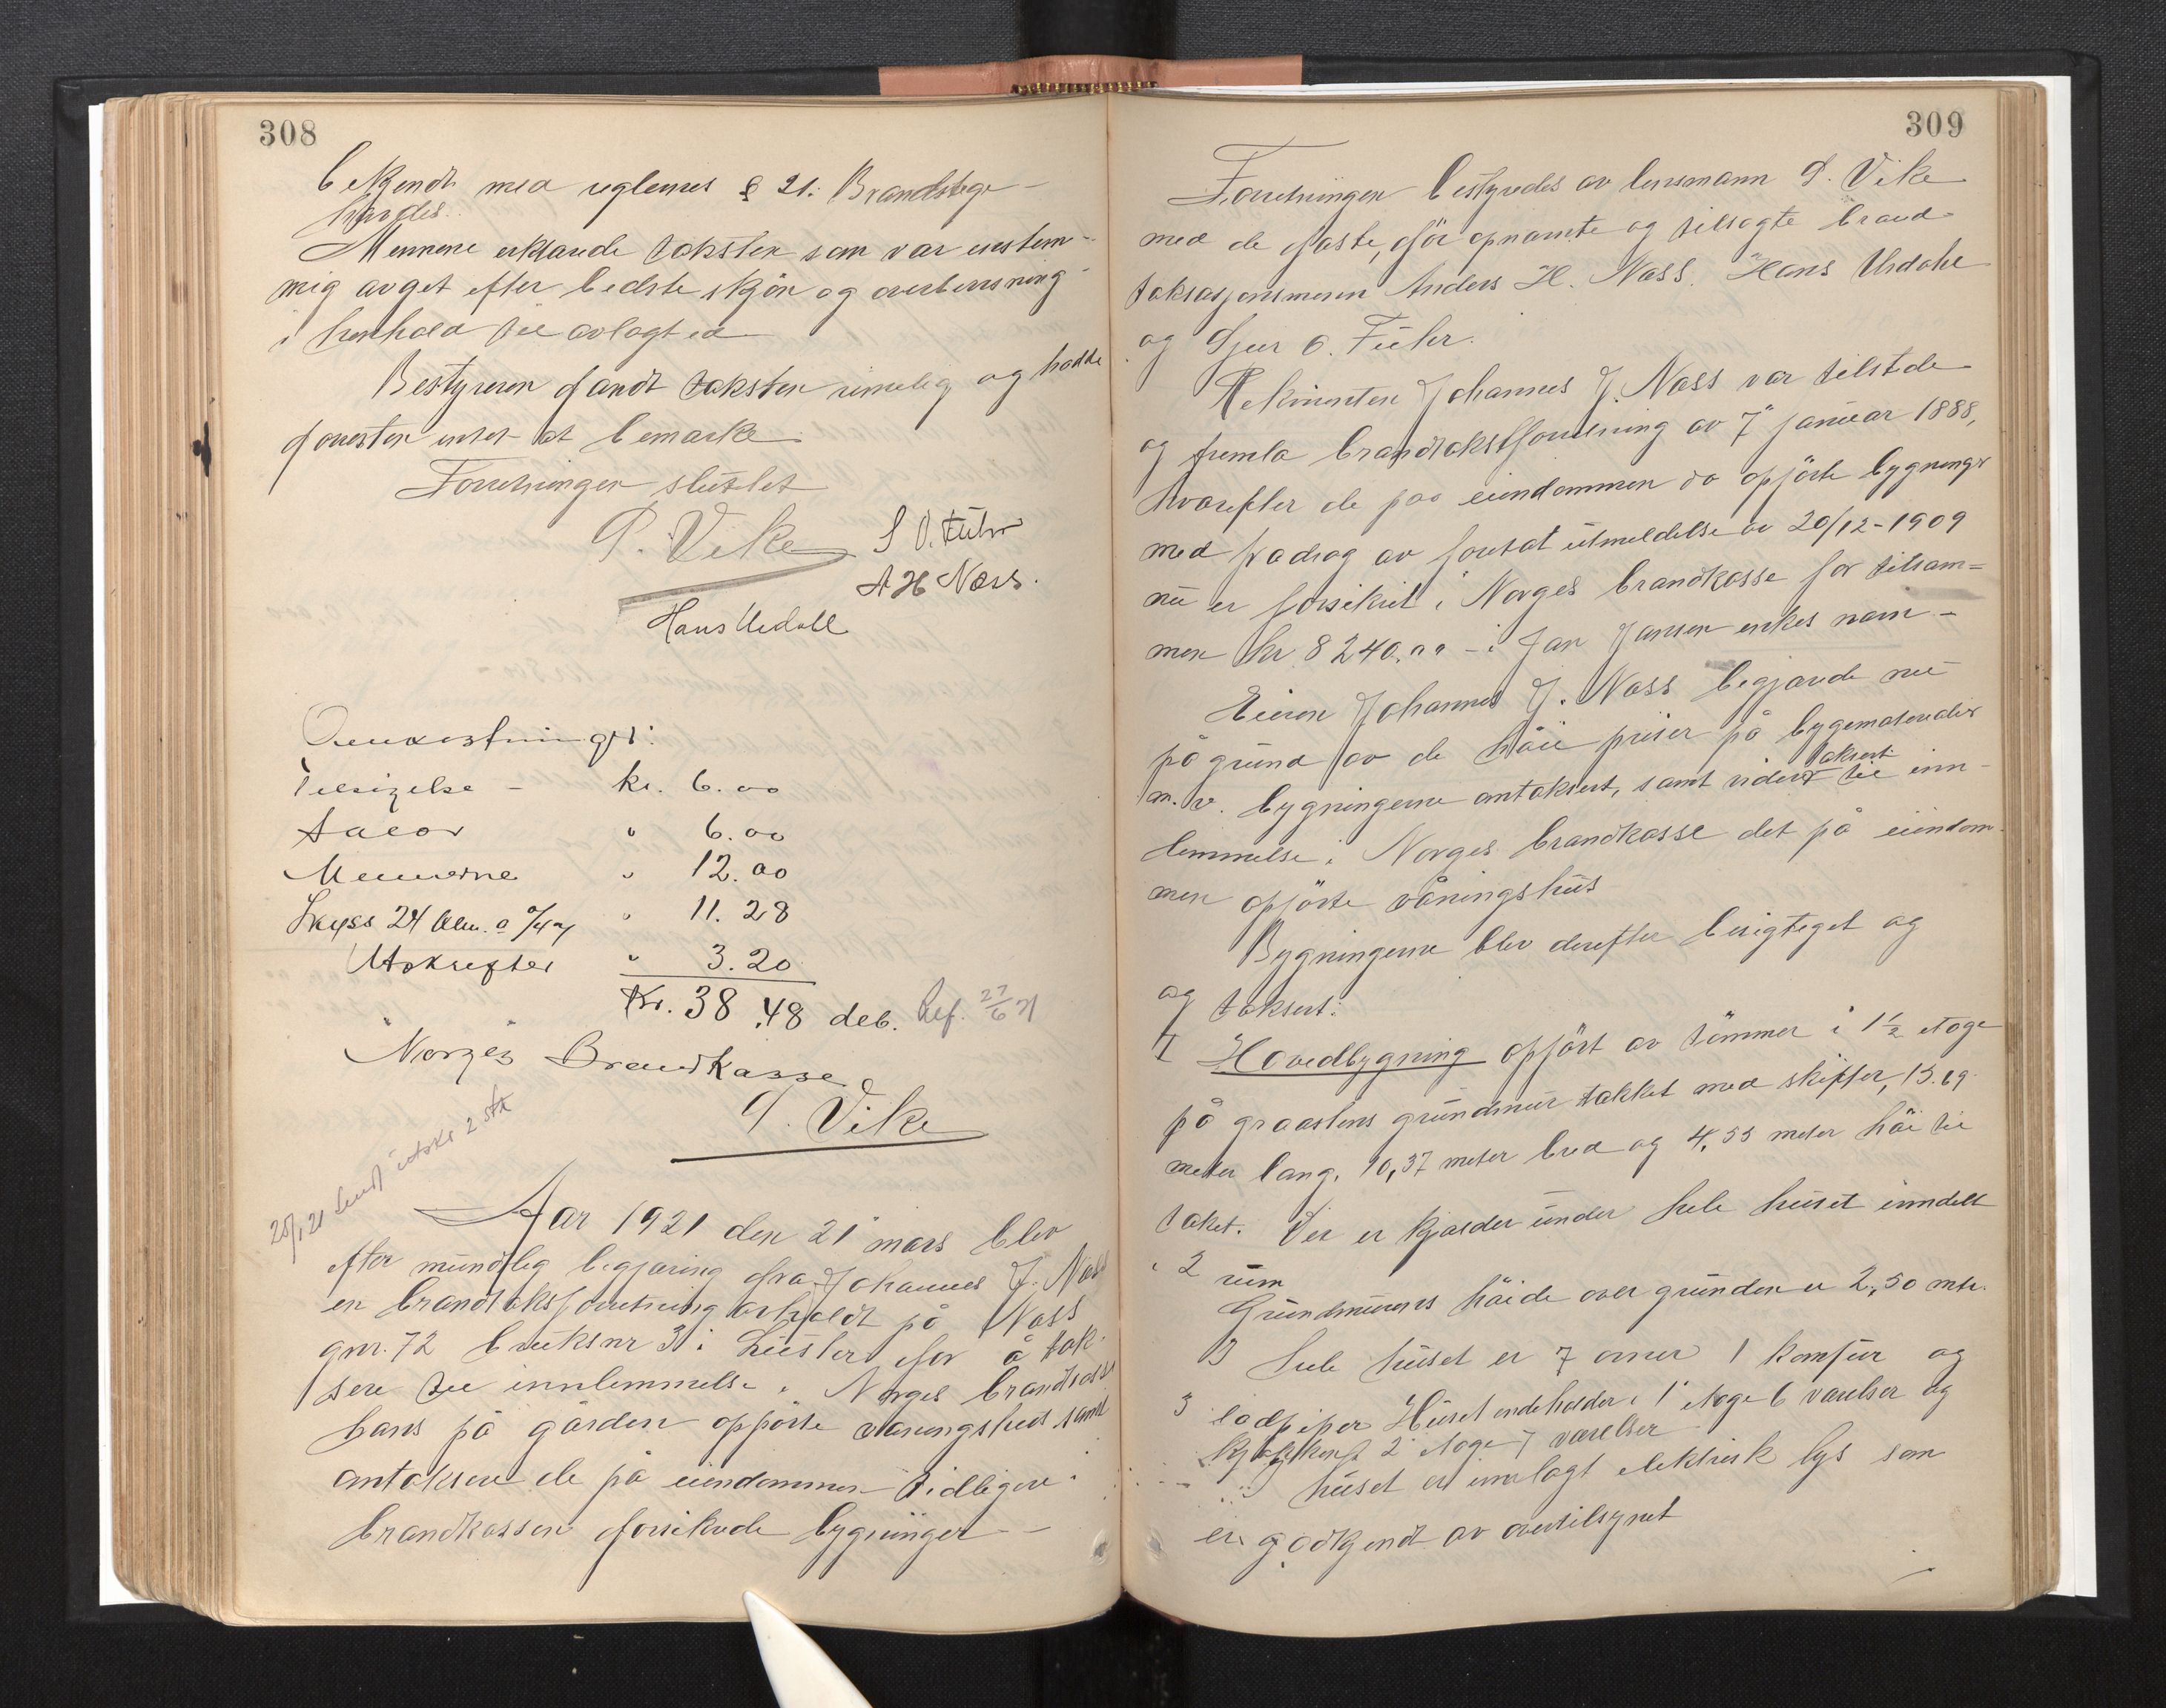 308
bekjendt med reglenes § 21. Brandstige
havdes.
Mennene erklærede taksten som var enstem-
mig avget efter bedste skjön og overbevisning
i henhold til avlagt ed
Bestyreren fandt taksten rimelig og hadde
foresten intet at bemærke
Forretningen sluttet
P. Vike S O. Fuhr
A H Næss.
Hans Urdahl
Omkostninger:
Tilsigelse - kr. 6.00
Salær " 6.00
Mennerne " 12.00
Skyss 24 klm. a " 11.28
Utskrifter " 3.20
Kr. 38.48 deb. Ref. 27/6 21
Norges Brandkasse
P. Vike
Sendt utskr 2 stk
Aar 1921 den 21 mars blev
efter mundtlig begjæring fra Johannes J. Næss
en brandtakstforretning avholdt på Næss
gnr. 72 bruksnr 3 i Luster for å tak-
sere til innlemmelse i Norges brandkasse
hans på gården opförte våningshus samt
antaksere de på eiendommen tidligere i
brandkassen forsikrede bygninger -
309
Forretningen bestyredes av lensmann P. Vike
med de faste, för opnævnte og tilsagte brand-
taksasjonsmenn Anders H. Næss. Hans Urdahl
og Sjur O. Fuhr.
Rekvirenten Johannes J. Næss var tilstede
og fremla brandtakstforretning av 7 januar 1888,
hvorefter de paa eiendommen da opförte bygninger
med fradrag av foretat utmeldelse av 20/12-1909
nu er forsikret i Norges brandkasse for tilsam=
men kr 8240.00 - i Jan Jansen enkes navn -
Eieren Johannes J. Næss begjærede nu
på grund av de höie priser på bygematerialer
m. v. bygningerne antaksert, samt videre taksert til inn-
lemmelse i Norges brandkasse det på eiendom-
men opförte våningshus
Bygningerne blev derefter besigtiget og
og taksert:
I Hovedbygning opfört av tömmer i 1½ etage
på graastens grundmur tækket med skiffer, 15.69
meter lang, 10,37 meter bred og 4,55 meter höi til
taket. Der er kjælder under hele huset inndelt
i 2 rum
Grundmurens höide over grunden er 2,50 mtr.
I hele huset er 7 ovner 1 komfur og
3 lodpiper Huset indeholder i 1 etage 6 værelser og
kjökken i 2 etage 7 værelser
I huset er innlagt elektrisk lys som
er godkjendt av overtilsynet